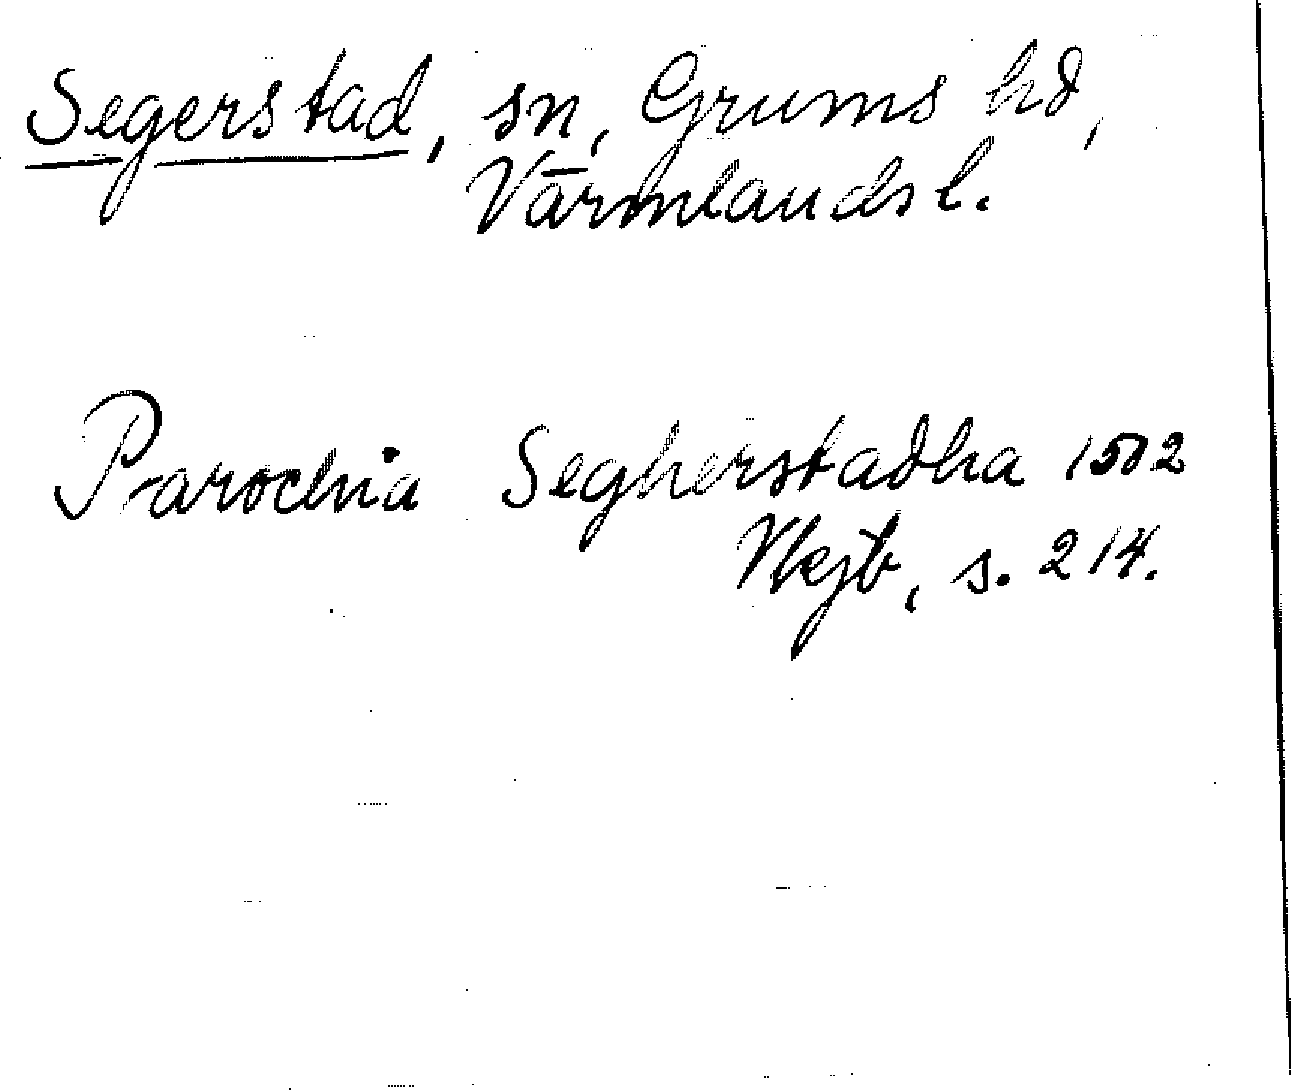 Segerstad, sn, Grums hd,
Värmlands l.
Parochia Segherstadha 1502
Vkjb, s. 214.